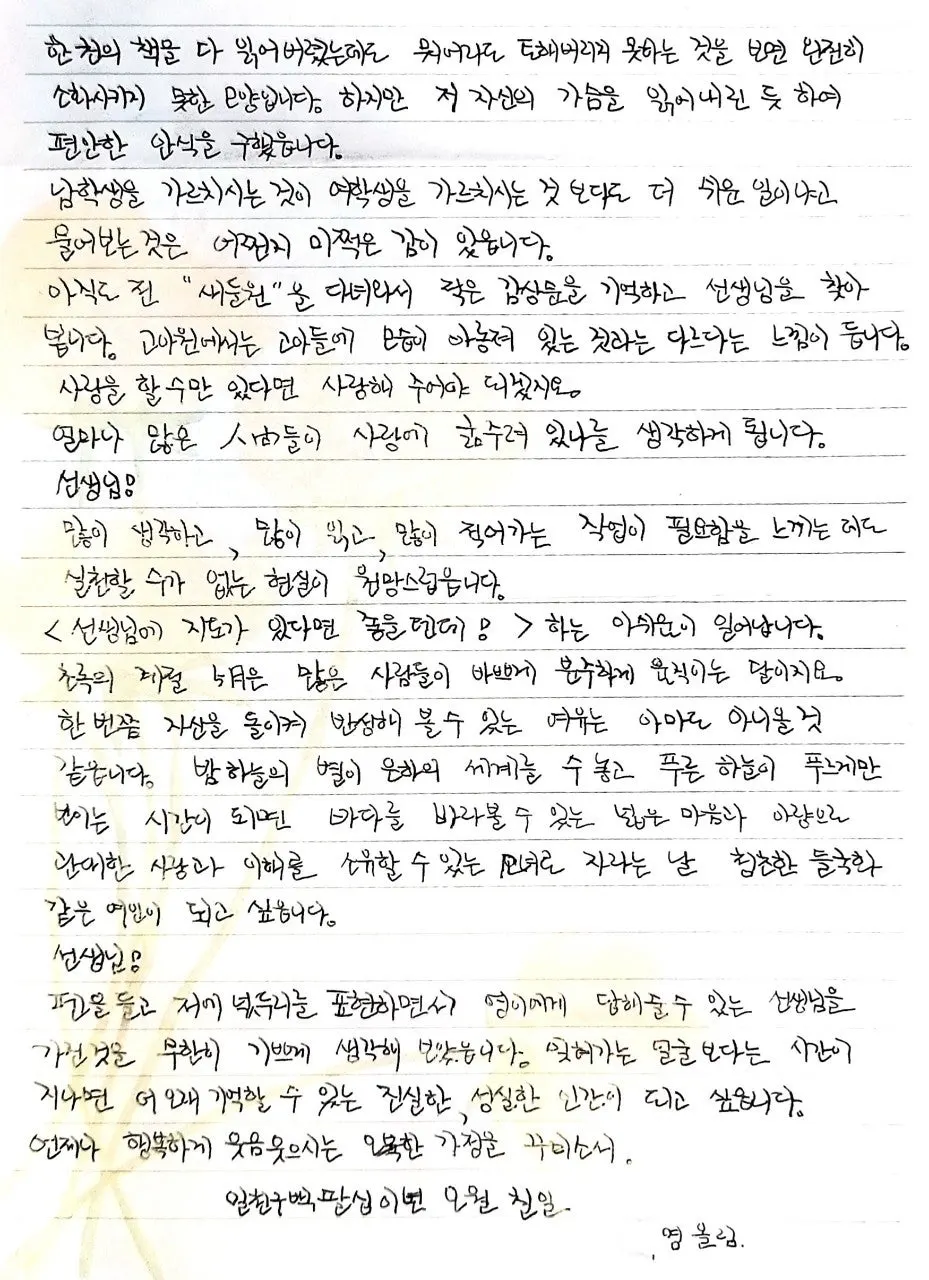 한 권의 책을 다 읽어 버렸는데도 뭐어라도 토해버리지 못하는 것을 보면 완전히
소화시키지 못한 모양입니다. 하지만 저 자신의 가슴을 읽어내린 듯 하여
편안한 안식을 구했읍니다.
남학생을 가르치시는 것이 여학생을 가르치시는 것 보다도 더 쉬운 일이냐고
물어보는 것은 어쩐지 미쩍은 감이 있읍니다.
아직도 전 "새들원"을 다녀와서 적은 감상문을 기억하고 선생님을 찾아
봅니다. 고아원에서는 고아들에 모습이 아롱져 있는 것라는 다르다는 느낌이 듭니다.
사랑을 할 수만 있다면 사랑해 주어야 되겠지요.
얼마나 많은 사람들이 사랑에 굶주려 있나를 생각하게 됩니다.
선생님!
많이 생각하고, 많이 읽고, 많이 적어가는 작업이 필요함을 느끼는 데도
실천할 수가 없는 현실이 원망스럽읍니다.
<선생님에 지도가 있다면 좋을텐데!> 하는 아쉬움이 일어납니다.
초록의 계절 5月은 많은 사람들이 바쁘게 분주하게 움직이는 달이지요.
한 번쯤 자신을 돌이켜 반성해 볼 수 있는 여유는 아마도 아니올 것
같읍니다. 밤 하늘의 별이 은하의 세계를 수 놓고 푸른 하늘이 푸르게만
보이는 시간이 되면 바다를 바라볼 수 있는 넓은 마음과 아량으로
관대한 사랑과 이해를 소유할 수 있는 소녀로 자라는 날 청초한 들국화
같은 여인이 되고 싶읍니다.
선생님!
펜을 들고 저에 넋두리를 표현하면서 영이에게 답해줄 수 있는 선생님을
가진것을 무한히 기쁘게 생각해 보았읍니다. 잊혀가는 얼굴 보다는 시간이
지나면 더 오래 기억할 수 있는 진실한, 성실한 인간이 되고 싶읍니다.
언제나 행복하게 웃음웃으시는 오붓한 가정을 꾸미소서.
일천구백팔십이년 오월 칠일.
영 올림.